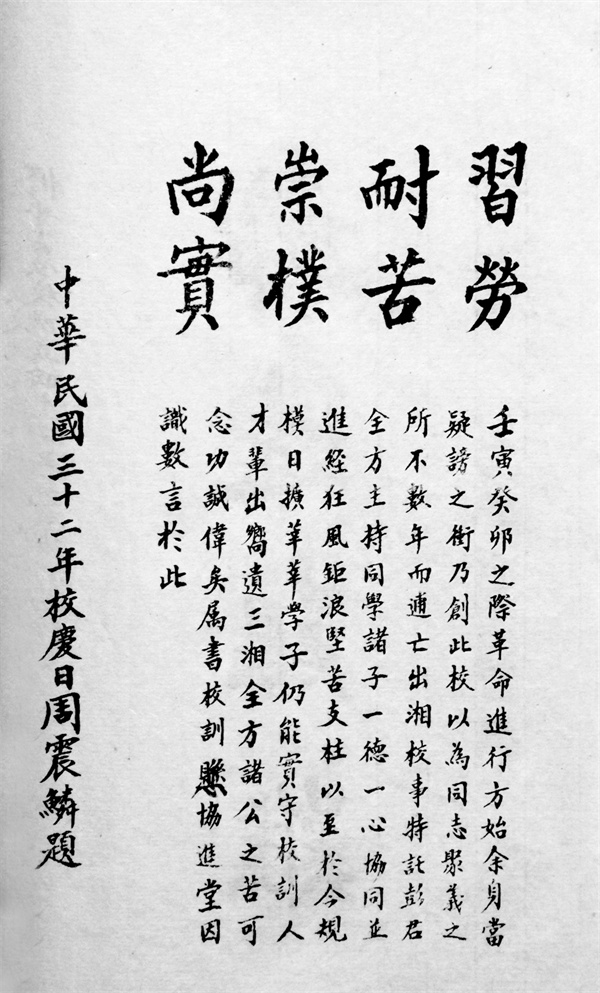 習勞
耐苦
崇樸
尚實
壬寅癸卯之際革命進行方始余身當
疑謗之衝乃創此校以為同志聚義之
所不數年而逋亡出湘校事特託彭君
全方主持同學諸子一德一心協同並
進經狂風鉅浪堅苦支柱以至於今規
模日擴莘莘學子仍能實守校訓人
才輩出嚮遺三湘全方諸公之苦可
念功誠偉矣属書校訓懸協進堂因
識數言於此
中華民國三十二年校慶日周震鱗題